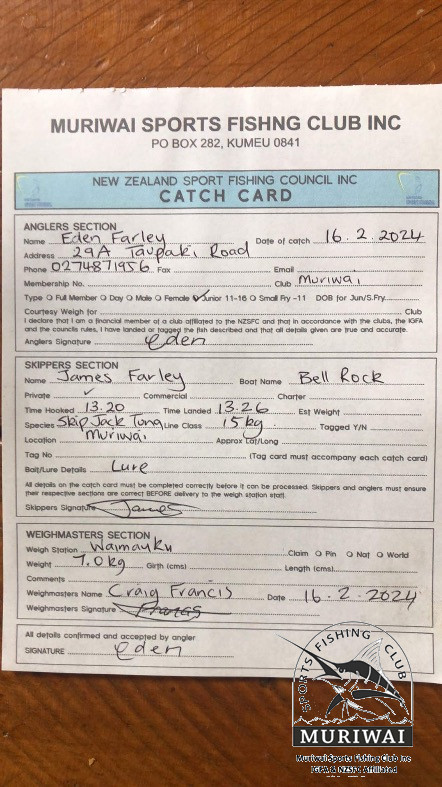 MURIWAI SPORTS FISHNG CLUB INC
PO BOX 282, KUMEU 0841
NEW ZEALAND SPORT FISHING COUNCIL INC
CATCH CARD
ANGLERS SECTION
Name Eden Farley Date of catch 16.2.2024
Address 29A Taupaki Road
Phone 0274871956 Fax Email
Membership No. Club Muriwai
Type O Full Member O Day O Male O Female ✓ Junior 11-16 O Small Fry -11 DOB for Jun/S.Fry
Courtesy Weigh for Club
I declare that I am a financial member of a club affiliated to the NZSFC and that in accordance with the clubs, the IGFA
and the councils rules, I have landed or tagged the fish described and that all details given are true and accurate.
Anglers Signature Eden
SKIPPERS SECTION
Name James Farley Boat Name Bell Rock
Private ✓ Commercial Charter
Time Hooked 13.20 Time Landed 13.26 Est Weight
Species Skip Jack Tuna Line Class 15kg Tagged Y/N
Location Muriwai Approx Lat/Long
Tag No (Tag card must accompany each catch card)
Bait/Lure Details Lure
All details on the catch card must be completed correctly before it can be processed. Skippers and anglers must ensure
their respective sections are correct BEFORE delivery to the weigh station staff.
Skippers Signature James
WEIGHMASTERS SECTION
Weigh Station Waimauku Claim O Pin O Nat O World
Weight 7.0kg Girth (cms) Length (cms)
Comments
Weighmasters Name Craig Francis Date 16.2.2024
Weighmasters Signature Francis
All details confirmed and accepted by angler
SIGNATURE Eden
SPORTS FISHING CLUB
MURIWAI
Muriwai Sports Fishing Club Inc
IGFA & NZSFC Affiliated